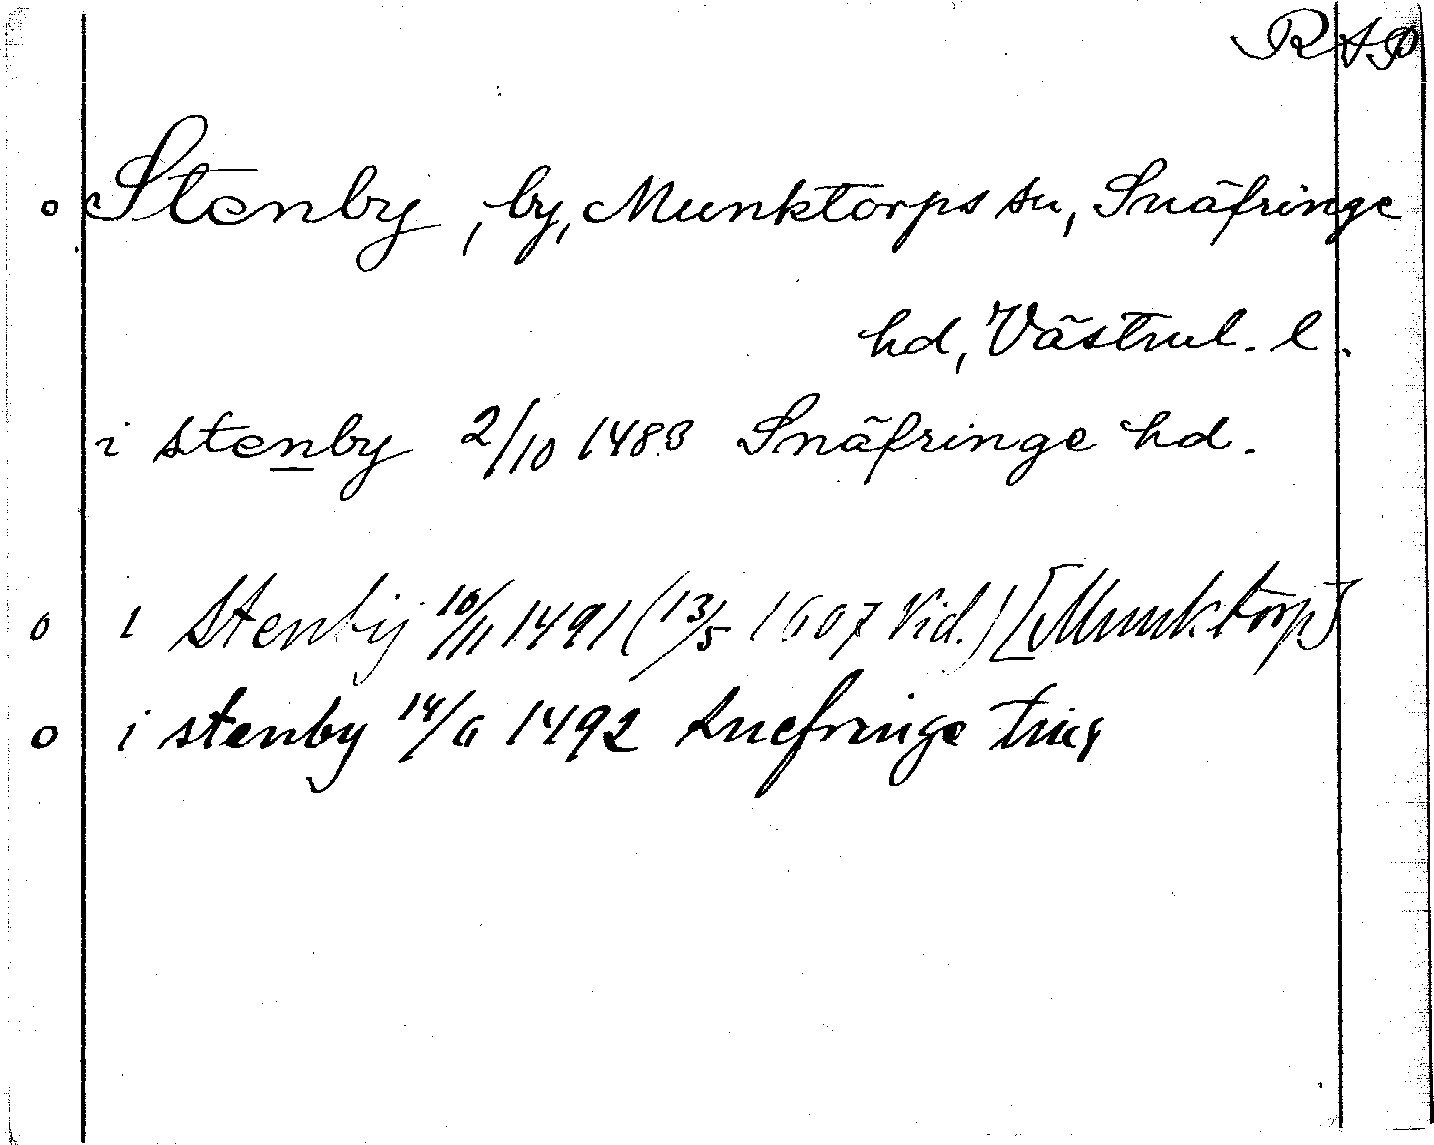 RAP
Stenby, by, Munktorps sn, Snäfringe
hd, Västml. l.
i stenby 2/10 1483 Snäfringe hd.
i Stenby 10/11 1491 (13/5 1607 Vid.) [Munktorp]
i stenby 14/6 1492 snefringe